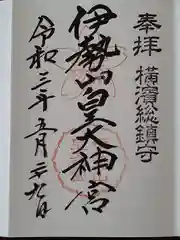 奉拝 横濱総鎮守
伊勢山皇大神宮
令和三年五月二九日